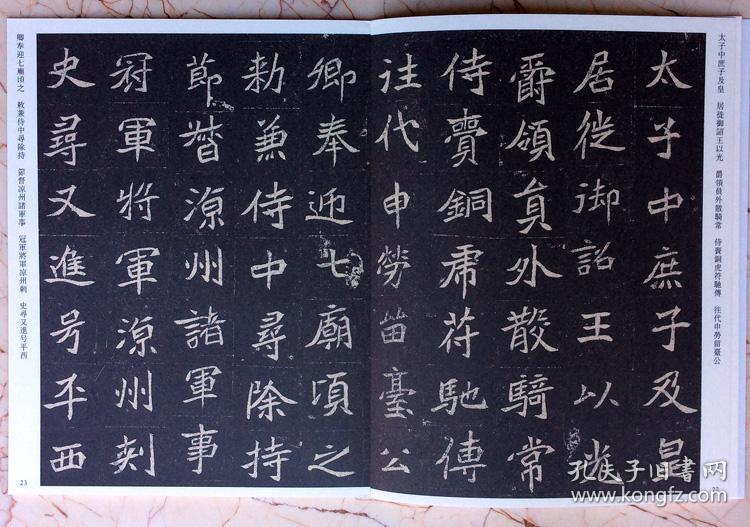 太子中庶子及皇
居徙御詔王以光
爵領員外散騎常
侍賫銅虎苻馳傳
往代申勞留臺公
卿奉迎七廟頃之
勑兼侍中尋除持
節督涼州諸軍事
冠軍將軍涼州刺
史尋又進号平西
太子中庶子及皇 居徙御詔王以光 爵領員外散騎常 侍賫銅虎符馳傳 往代申勞留臺公
22
卿奉迎七廟頃之 敕兼侍中尋除持 節督涼州諸軍事 冠軍將軍涼州刺 史尋又進号平西
23
孔夫子旧书网
www.kongfz.com